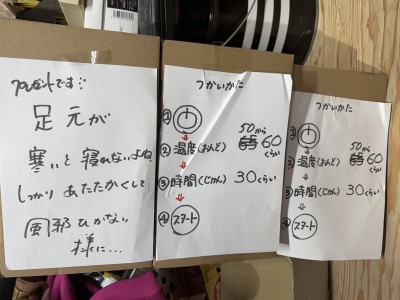 プレゼントです:
足元が
寒いと寝れないよね
しっかりあたたかくして
風邪ひかない
様に...
つかいかた
①
↓
②温度(おんど) 50から60くらい
↓
③時間(じかん) 30くらい
↓
④スタート
つかいかた
①
↓
②温度(おんど) 50から60くらい
↓
③時間(じかん) 30くらい
↓
④スタート